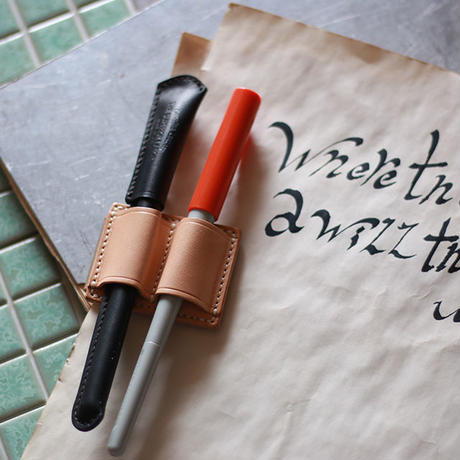 Where th
a will th
w